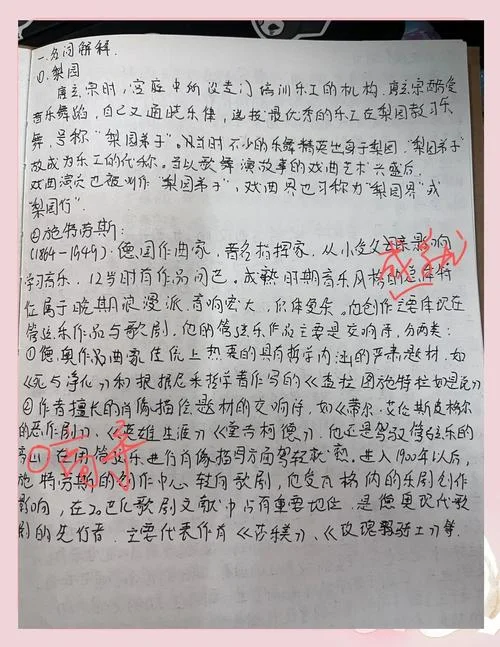 一.名词解释.
①.梨园
唐玄宗时,宫庭中所设专门培训乐工的机构.唐玄宗酷爱
音乐舞蹈,自己又通晓乐律,选拔最优秀的乐工在梨园教习乐
舞,号称"梨园弟子"。凡当时不少的乐舞精英出身于梨园,"梨园弟子"
故成为乐工的代称。当以歌舞演故事的戏曲艺术兴盛后,
戏曲演员也被叫作"梨园弟子",戏曲界也习称为"梨园界"或
梨园行"。
②施特劳斯:
(1864-1949).德国作曲家,音名指挥家.从小受父母亲影响
学习音乐,12岁时有作品问世。成熟时期音乐风格的总体特
位属于晚期浪漫派.音响宏大,织体复杂。他创作主要体现在
管弦乐作品与歌剧.他的管弦乐作品主要是交响诗,分两类:
①德奥作品曲家传统上热衷的具有哲学内涵的严肃题材,如
《死与净化》和根据尼采哲学著作写的《查拉图施特拉如是说》
②作者擅长的肖像描绘题材的交响诗,如《蒂尔.艾伦斯皮格尔
的恶作剧》《英雄生涯》《堂吉柯德》.他还是驾驭管弦乐的
在用管弦乐进行肖像描写方面驾轻就熟.进入1900年以后,
施特劳斯的创作中心转向歌剧,他受瓦格纳的乐剧创作
影响,在20世纪歌剧文献中占有重要地位.是德奥现代歌
剧的先行者.主要代表作有《莎乐美》、《玫瑰骑士》等.